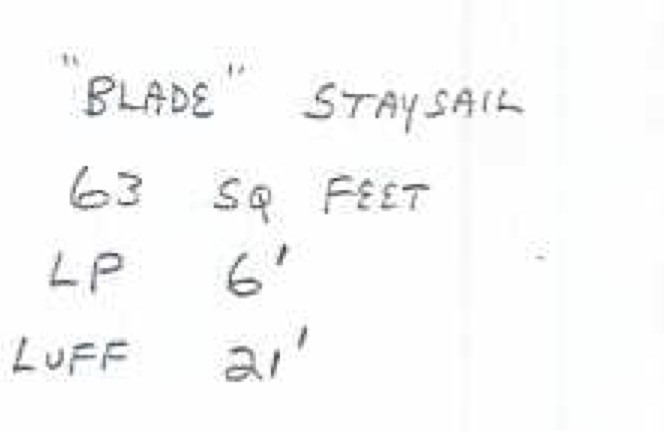 "BLADE" STAYSAIL
63 SQ FEET
LP 6'
LUFF 21'